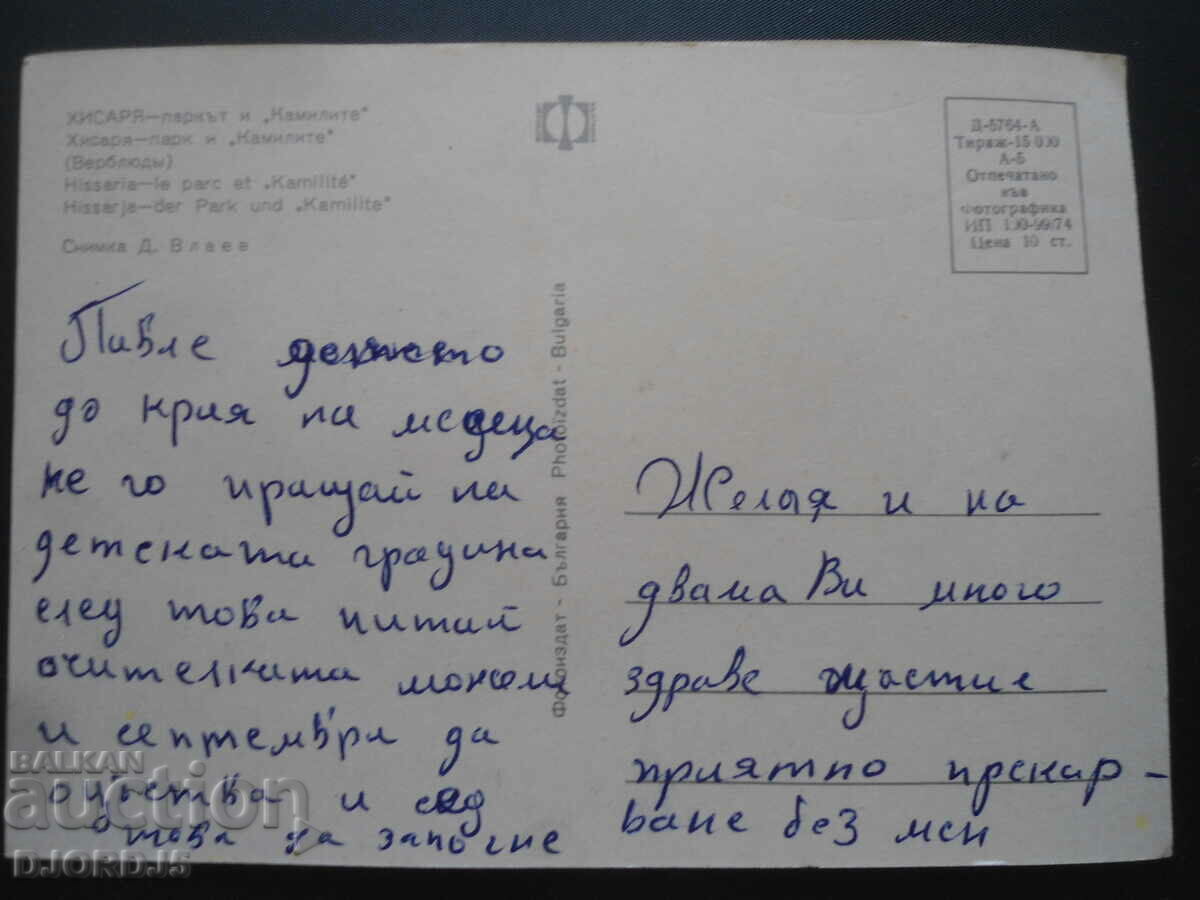 ХИСАРЯ—паркът и „Камилите"
Хисаря—парк и „Камилите"
(Верблюды)
Hissaria—le parc et „Kamilité"
Hissarja—der Park und „Kamilite"
Снимка Д. Влаев
Д-5764-А
Тираж-15 000
А-5
Отпечатано
във
Фотографика
ИП 100-99/74
Цена 10 ст.
Фотоиздат - България Photoizdat - Bulgaria
Павле детето
до края на месеца
не го пращай на
детската градина
след това питай
очителката може ли
и септември да
отсъства и след
това да започне
Желая и на
двама Ви много
здраве щастие
приятно прекар-
ване без мен
BALKAN
аукцион
DJORDJ5